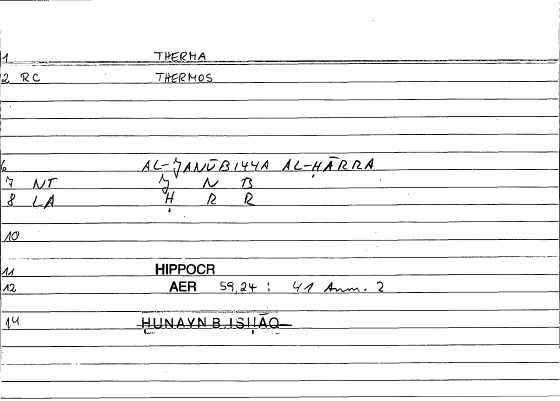 1 THERMA
2 RC THERMOS
6 AL-ǦANŪBIYYA AL-ḤĀRRA
7 NT Ǧ N B
8 LA Ḥ R R
10
11 HIPPOCR
12 AER 59,24 : 41 Anm. 2
14 HUNAYN B. ISḤĀQ